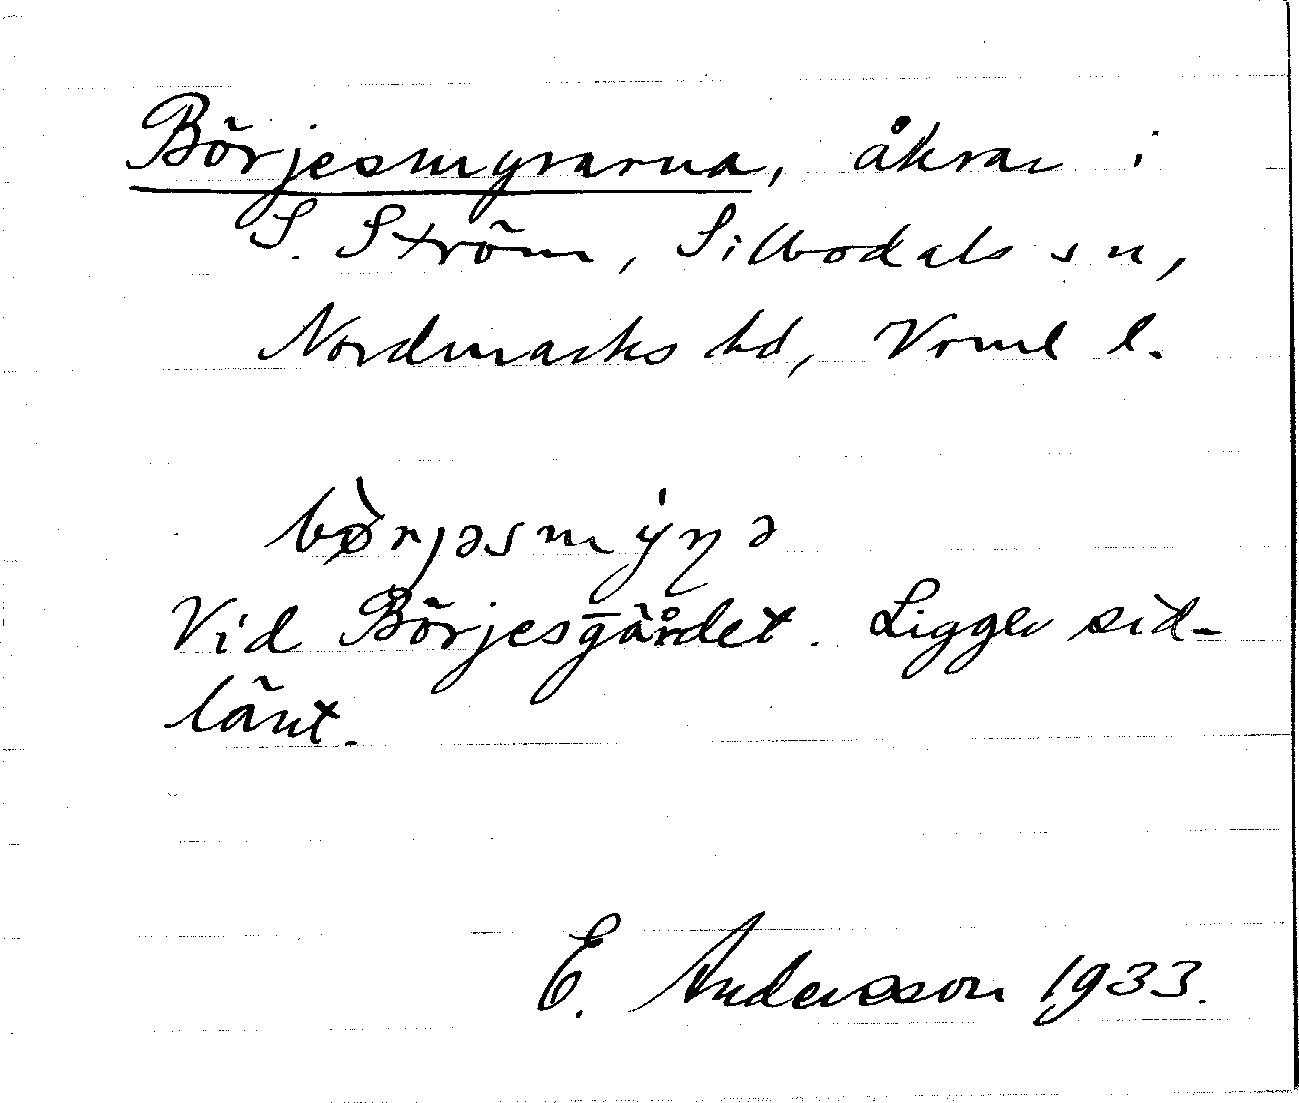 Börjesmyrarna, åkrar i
S. Ström, Silbodals sn,
Nordmarks hd, Vrml l.
bø̀rjəsmyṇə
Vid Börjesgärdet. Ligger sid-
länt.
E. Andersson 1933.